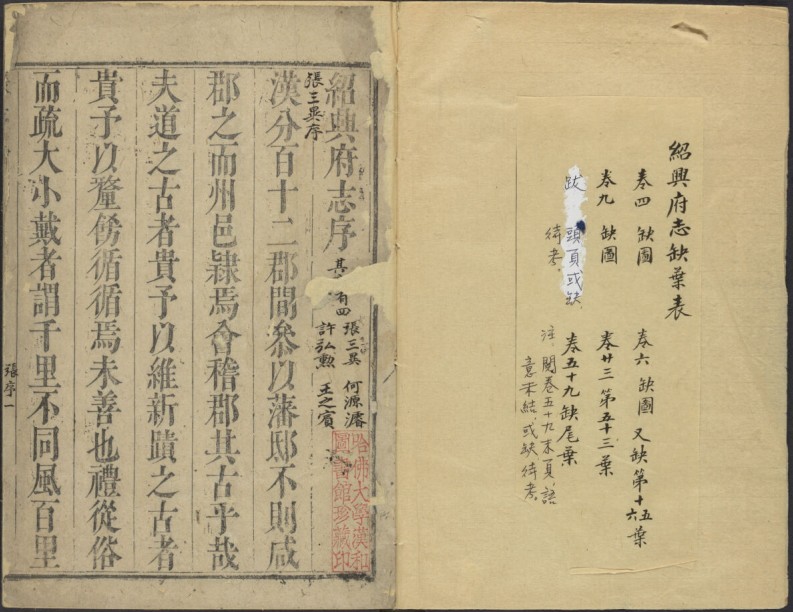 紹興府志缺葉表
卷四 缺圖
卷六 缺圖 又缺第十五六葉
卷九 缺圖
卷廿三 第五十三葉
跋 頭頁或缺
待考
卷五十九缺尾葉
注、閱卷五十九末頁、語
意未結、或缺待考
紹興府志序
張三異序
其 有四 張三異 何源濬
許弘勲 王之賓
漢分百十二郡間叅以藩邸不則咸
郡之而州邑隷焉會稽郡其古乎哉
夫道之古者貴予以維新蹟之古者
貴予以釐傍循循焉未善也禮從俗
而疏大小戴者謂千里不同風百里
張序一
哈佛大學漢和
圖書館珍藏印